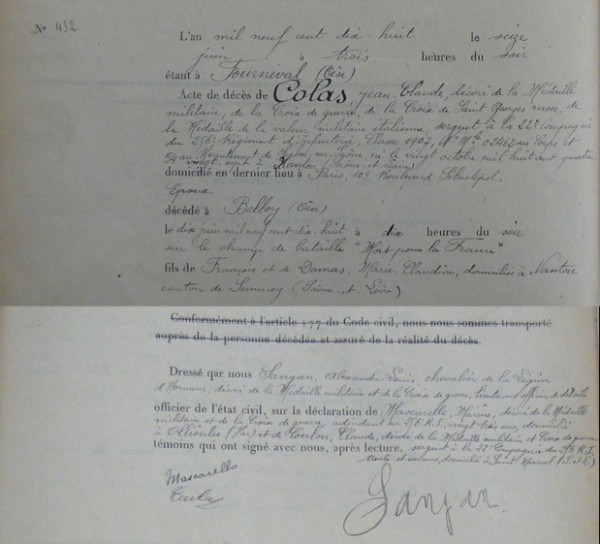 No 432
L'an mil neuf cent dix-huit le seize
juin à trois heures du soir
étant à Fournival (Oise)
Acte de décès de Colas, Jean, Claude, décoré de la Médaille
militaire, de la Croix de guerre, de la Croix de Saint Georges russe, de
la Médaille de la valeur militaire italienne, sergent à la 22e Compagnie
du 256e Régiment d'Infanterie, Classe 1907, No Mle 02462 au Corps et
au Recrutement de né le vingt octobre mil huit cent quatre
vingt sept à Nanton (Saône et Loire)
domicilié en dernier lieu à Paris, 103, Boulevard Sébastopol.
Epoux
décédé à Belloy (Oise)
le dix juin mil neuf cent dix-huit à dix heures du soir
sur le champ de bataille "Mort pour la France"
fils de François et de Damas, Marie Claudine, domiciliés à Nanton
canton de Sennecey (Saône et Loire)
Conformément à l'article 177 du Code civil, nous nous sommes transporté
auprès de la personne décédée et assuré de la réalité du décès.
Dressé par nous Sangan, Alexandre Louis, chevalier de la Légion
d'Honneur, décoré de la Médaille militaire et de la Croix de guerre, lieutenant officier de détails
officier de l'état civil, sur la déclaration de Mascarello, Marius, décoré de la Médaille
militaire et de la Croix de guerre, adjudant au 256 R.I., vingt trois ans, domicilié
à Ollioules (Var) et de Coulon, Claude, décoré de la Médaille militaire et Croix de guerre
témoins qui ont signé avec nous, après lecture. sergent à la 22e Compagnie du 256 R.I.
trente et un ans, domicilié à Saint Marcel (S. et L.)
Mascarello
Sangan